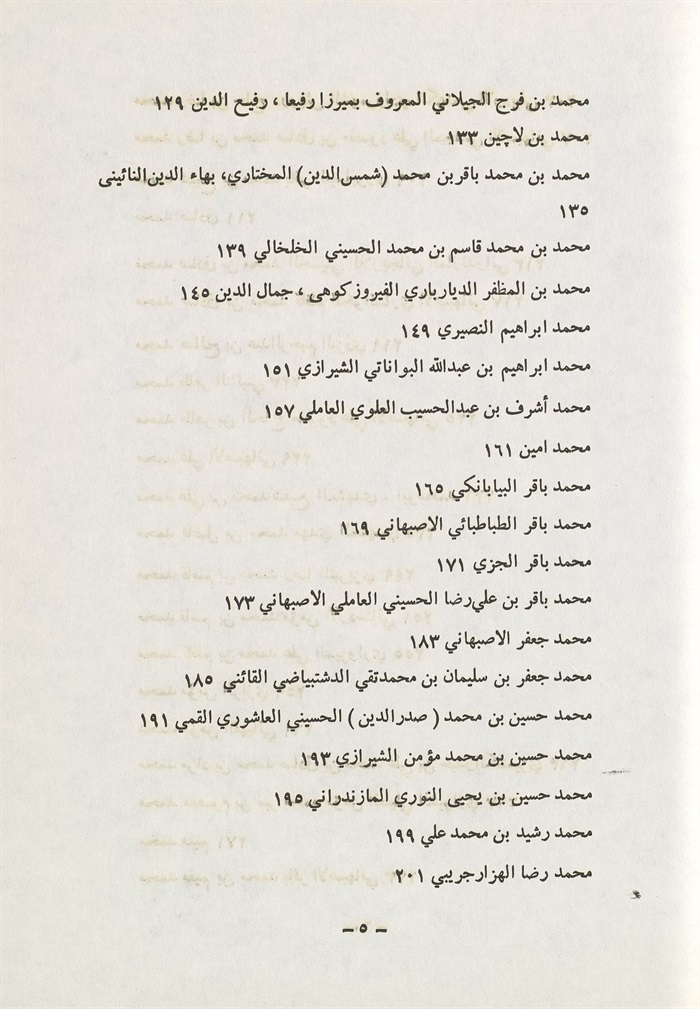 محمد بن فرج الجيلاني المعروف بميرزا رفيعا ، رفيع الدين ١٢٩
محمد بن لاچين ١٣٣
محمد بن محمد باقربن محمد (شمس‌الدين) المختاري، بهاء الدين‌النائينى
١٣٥
محمد بن محمد قاسم بن محمد الحسيني الخلخالي ١٣٩
محمد بن المظفر الديارباري الفيروزكوهى ، جمال الدين ١٤٥
محمد ابراهيم النصيري ١٤٩
محمد ابراهيم بن عبدالله البواناتي الشيرازي ١٥١
محمد أشرف بن عبدالحسيب العلوي العاملي ١٥٧
محمد امين ١٦١
محمد باقر البيابانكي ١٦٥
محمد باقر الطباطبائي الاصبهاني ١٦٩
محمد باقر الجزي ١٧١
محمد باقر بن علي‌رضا الحسيني العاملي الاصبهاني ١٧٣
محمد جعفر الاصبهاني ١٨٣
محمد جعفر بن سليمان بن محمدتقي الدشتبياضي القائني ١٨٥
محمد حسين بن محمد ( صدرالدين ) الحسيني العاشوري القمي ١٩١
محمد حسين بن محمد مؤمن الشيرازي ١٩٣
محمد حسين بن يحيى النوري المازندراني ١٩٥
محمد رشيد بن محمد علي ١٩٩
محمد رضا الهزارجريبي ٢٠١
ـ ٥ ـ